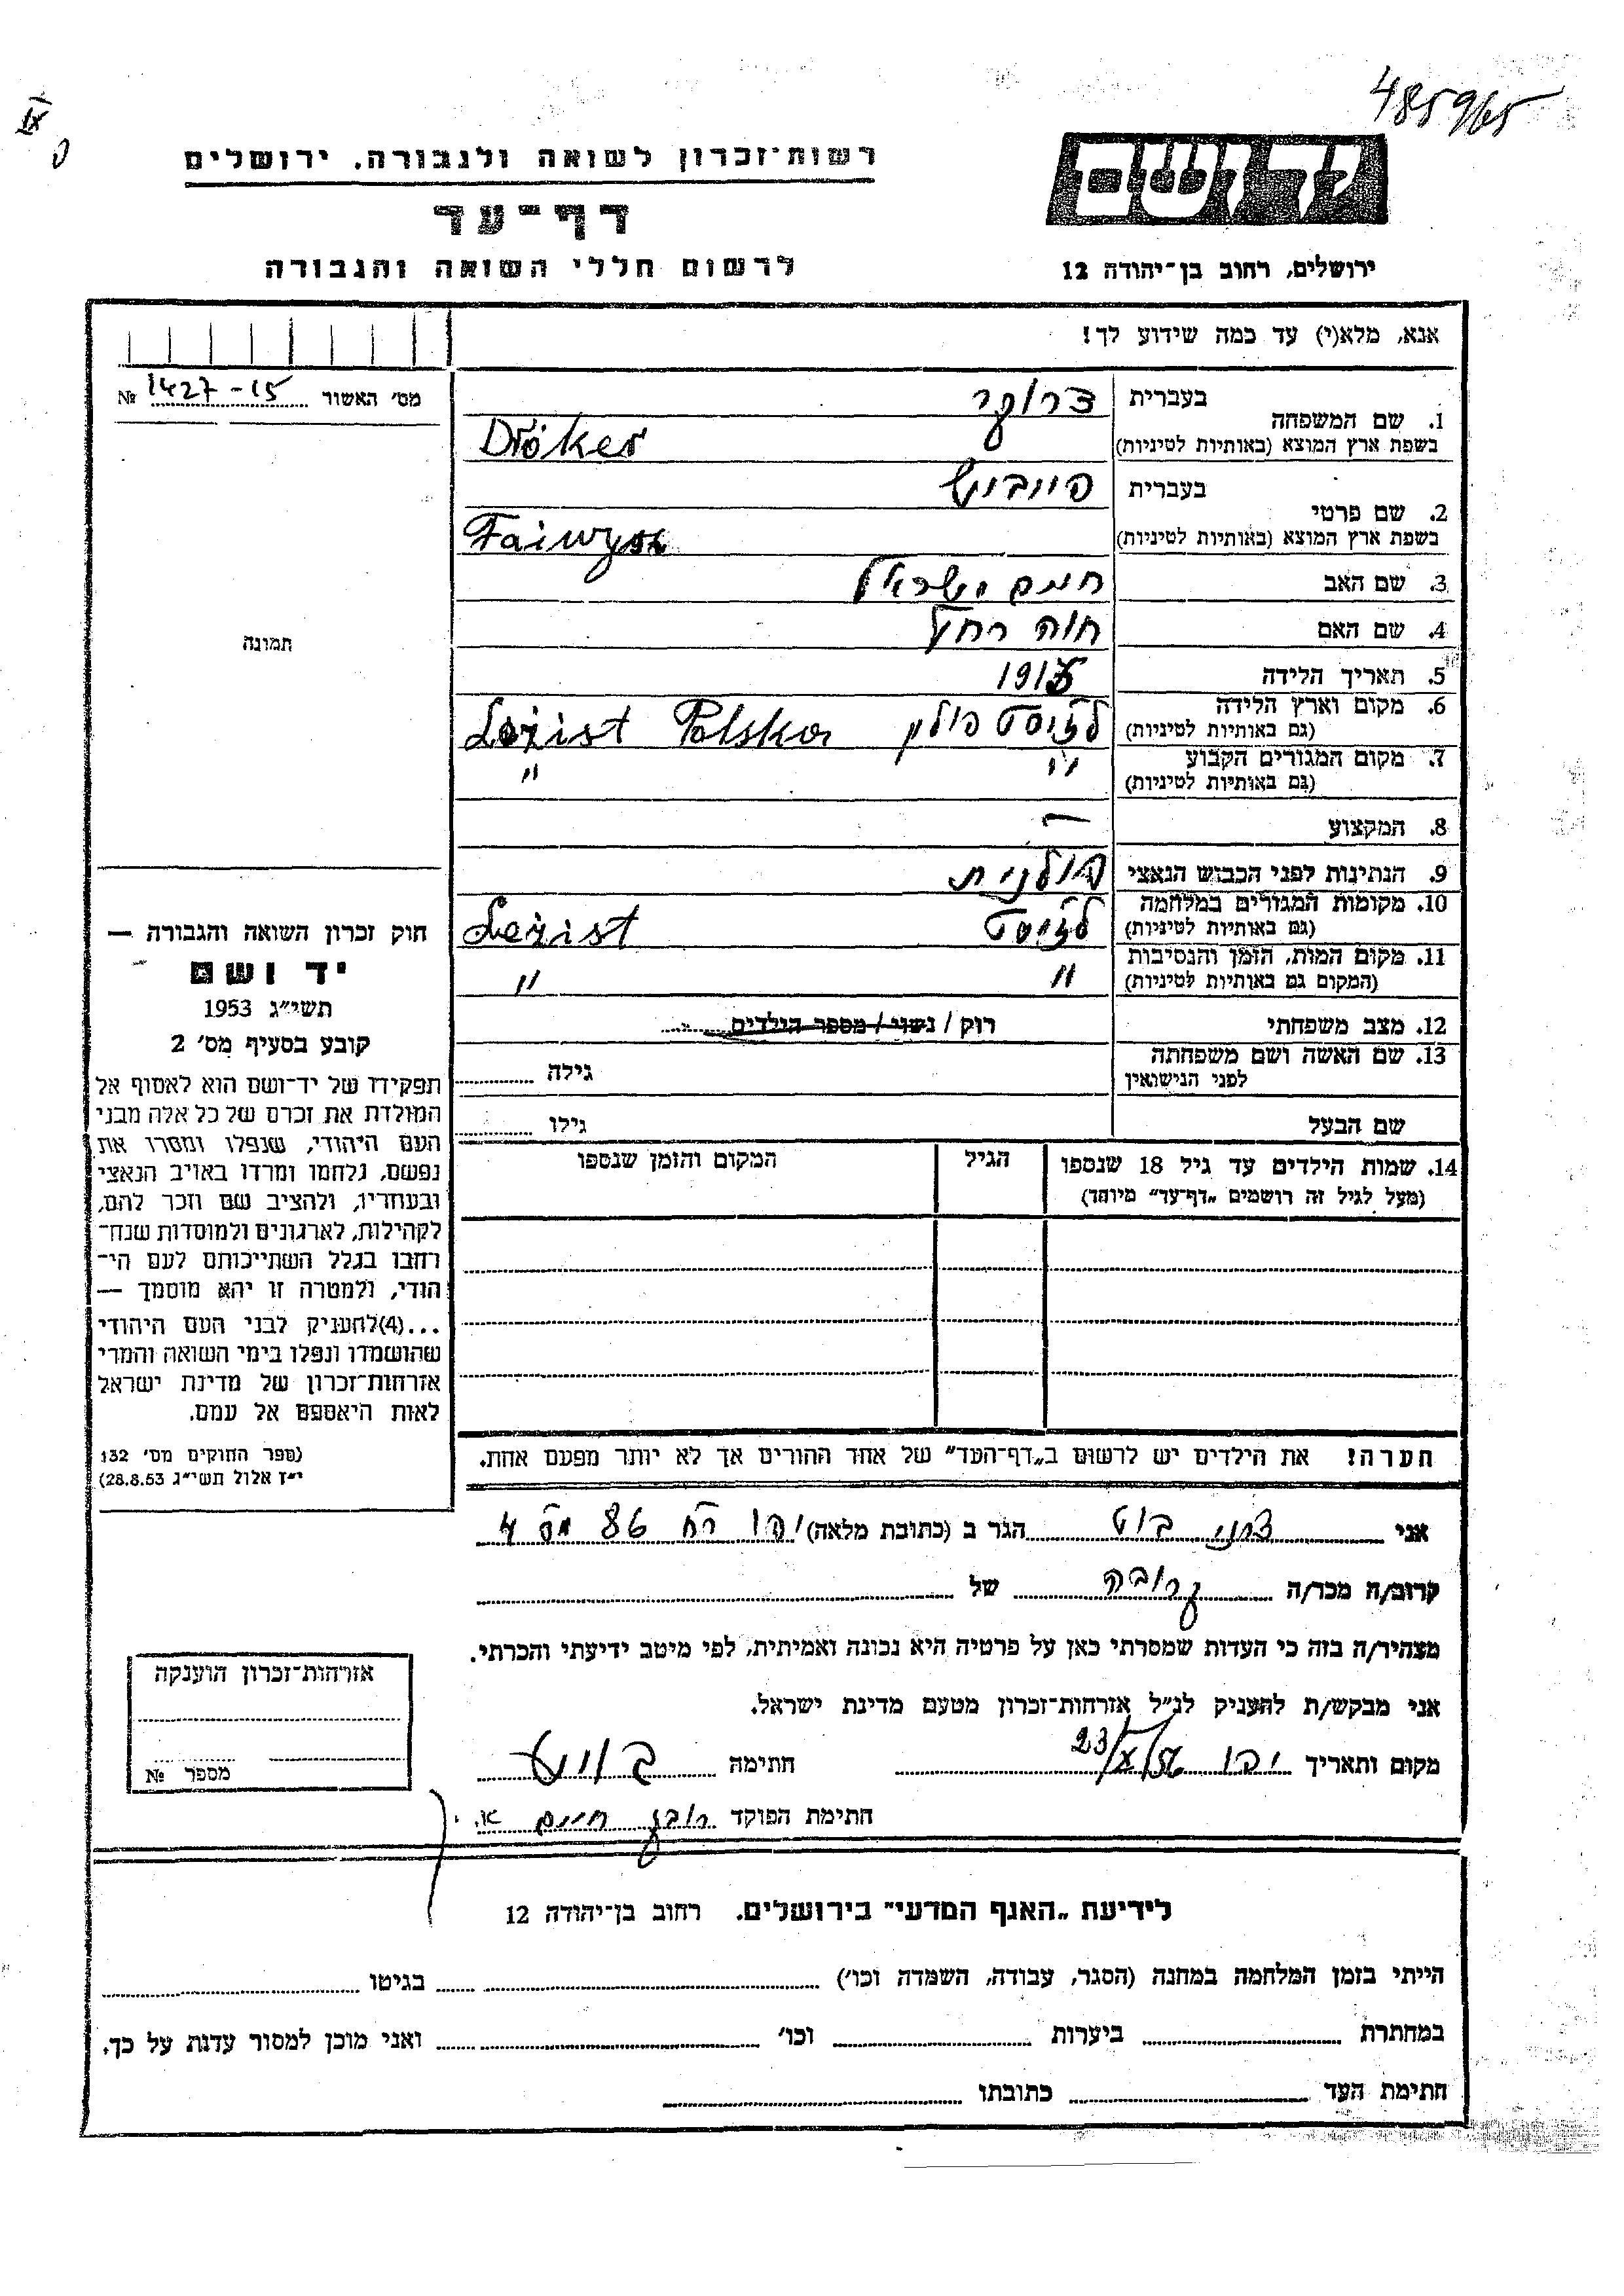 485965
IX
רשות־זכרון לשואה ולגבורה. ירושלים
דף־עד
לרשום חללי השואה והגבורה
יד ושם
ירושלים, רחוב בן־יהודה 12
אנא, מלא(י) עד כמה שידוע לך!
מס׳ האשור № 1427-15
תמונה
1. שם המשפחה בעברית דרוקר
בשפת ארץ המוצא (באותיות לטיניות) Dröker
2. שם פרטי בעברית פייביש
בשפת ארץ המוצא (באותיות לטיניות) Faiwysh
3. שם האב חיים ישראל
4. שם האם חוה רחל
5. תאריך הלידה
6. מקום וארץ הלידה לזיסט פולין Leżist Polska
(גם באותיות לטיניות)
7. מקום המגורים הקבוע " "
(גם באותיות לטיניות)
8. המקצוע —
9. הנתינות לפני הכבוש הנאצי פולנית
10. מקומות המגורים במלחמה לזיסט Leżist
(גם באותיות לטיניות)
11. מקום המות, הזמן והנסיבות " "
(המקום גם באותיות לטיניות)
12. מצב משפחתי רוק / נשוי / מספר הילדים
13. שם האשה ושם משפחתה
לפני הנישואין גילה
שם הבעל גילו
14. שמות הילדים עד גיל 18 שנספו הגיל המקום והזמן שנספו
(מעל לגיל זה רושמים „דף־עד" מיוחד)
הערה! את הילדים יש לרשום ב„דף־העד" של אחד ההורים אך לא יותר מפעם אחת.
חוק זכרון השואה והגבורה —
יד ושם
תשי״ג 1953
קובע בסעיף מס׳ 2
תפקידו של יד־ושם הוא לאסוף אל
המולדת את זכרם של כל אלה מבני
העם היהודי, שנפלו ומסרו את
נפשם, נלחמו ומרדו באויב הנאצי
ובעוזריו, ולהציב שם וזכר להם,
לקהילות, לארגונים ולמוסדות שנח־
רבו בגלל השתייכותם לעם הי־
הודי, ולמטרה זו יהא מוסמך —
...(4)להעניק לבני העם היהודי
שהושמדו ונפלו בימי השואה והמרי
אזרחות־זכרון של מדינת ישראל
לאות היאספם אל עמם.
(ספר החוקים מס׳ 132
י״ז אלול תשי״ג 28.8.53)
אני בוט הגר ב (כתובת מלאה) יפו רח 86 מס 4
קרוב/ה מכר/ה קרובה של
מצהיר/ה בזה כי העדות שמסרתי כאן על פרטיה היא נכונה ואמיתית, לפי מיטב ידיעתי והכרתי.
אני מבקש/ת להעניק לנ״ל אזרחות־זכרון מטעם מדינת ישראל.
מקום ותאריך יפו 23/X/56 חתימה
חתימת הפוקד חיים א.
אזרחות־זכרון הוענקה
מספר №
לידיעת „האגף המדעי" בירושלים. רחוב בן־יהודה 12
הייתי בזמן המלחמה במחנה (הסגר, עבודה, השמדה וכו׳) בגיטו
במחתרת ביערות וכו׳ ואני מוכן למסור עדות על כך.
חתימת העד כתובתו